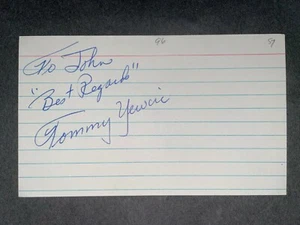 96 97
To John
"Best Regards"
Tommy Yewcic